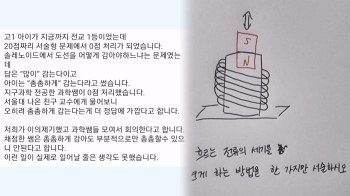 고1 아이가 지금까지 전교 1등이었는데
20점짜리 서술형 문제에서 0점 처리가 되었습니다.
솔레노이드에서 도선을 어떻게 감아야하느냐는 문제였는
데
답은 "많이" 감는다이고
아이는 "촘촘하게" 감는다라고 썼습니다.
지구과학 전공한 과학쌤이 0점 처리했습니다.
서울대 나온 친구 교수에게 물어보니
오히려 촘촘하게 감는다는게 더 정답에 가깝다고 합니다.
저희가 이의제기했고 과학쌤들 모여서 회의한다고 합니다.
채점한 쌤은 촘촘하게 감아도 부분적으로만 촘촘할수 있으
니 안된다고 합니다.
이런 일이 실제로 일어날 줄은 생각도 못했습니다.
S
N
흐르는 전류의 세기를
크게 하는 방법을 한 가지만 서술하시오